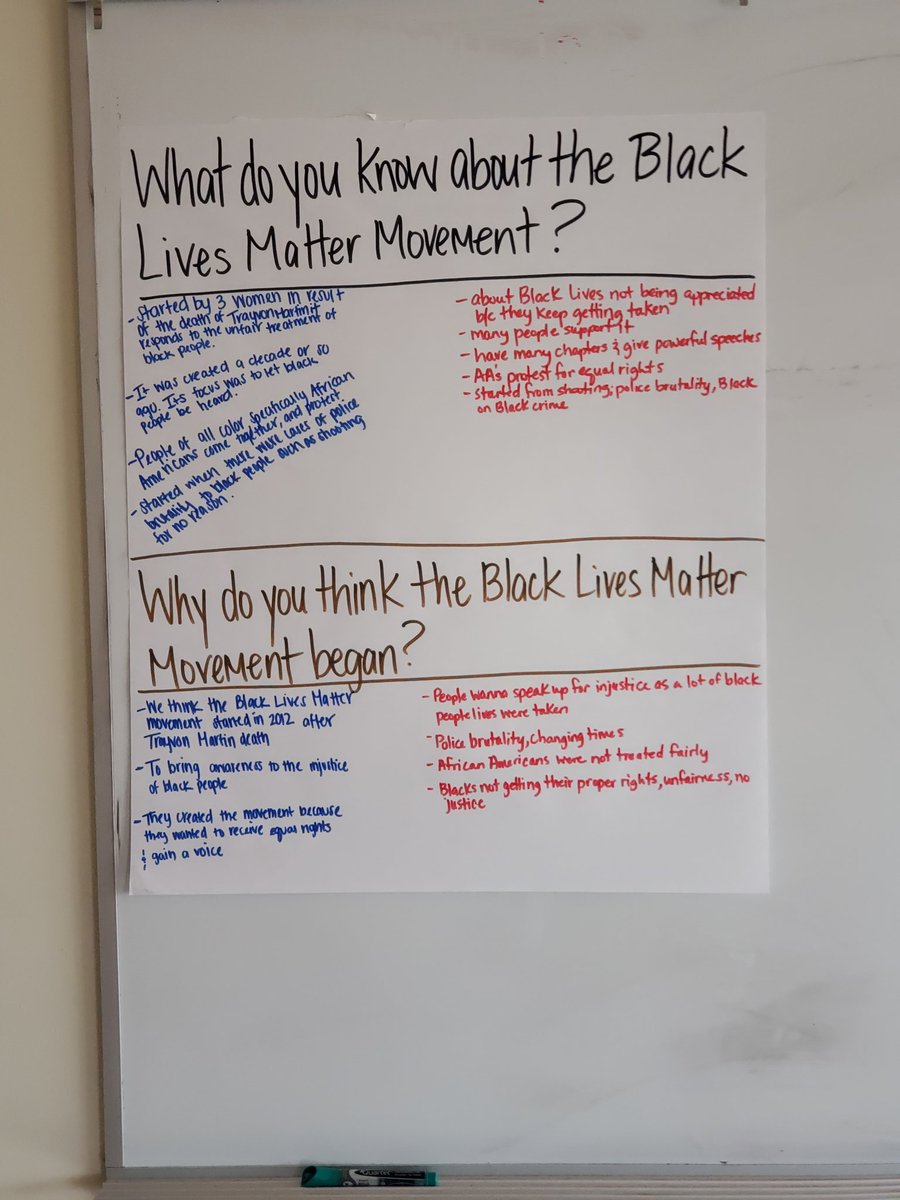 What do you know about the Black
Lives Matter Movement?
- Started by 3 women in result
of the death of Trayvon Martin it
responds to the unfair treatment of
black people.
- It was created a decade or so
ago. Its focus was to let black
people be heard.
- People of all color, specifically African
Americans come together, and protest.
- started when there were cases of police
brutality to black people such as shooting
for no reason.
- about Black Lives not being appreciated
b/c they keep getting taken
- many people support it
- have many chapters & give powerful speeches
- AA's protest for equal rights
- started from shooting, police brutality, Black
on Black crime
Why do you think the Black Lives Matter
Movement began?
- We think the Black Lives Matter
movement started in 2012 after
Trayvon Martin death
- To bring awareness to the injustice
of black people
- They created the movement because
they wanted to receive equal rights
& gain a voice
- People wanna speak up for injustice as a lot of black
people lives were taken
- Police brutality, changing times
- African Americans were not treated fairly
- Blacks not getting their proper rights, unfairness, no
justice